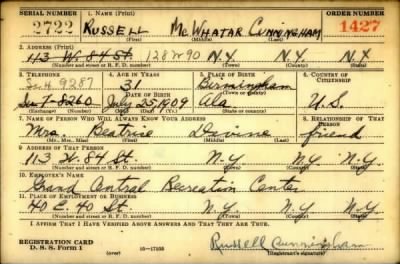 SERIAL NUMBER 1. NAME (Print) ORDER NUMBER
2722 RUSSELL McWHATAR CUNNINGHAM 1427
(First) (Middle) (Last)
2. ADDRESS (Print)
113 W. 84 St 128 W 90 N.Y. N.Y. N.Y.
(Number and street or R. F. D. number) (Town) (County) (State)
3. TELEPHONE 4. AGE IN YEARS 5. PLACE OF BIRTH 6. COUNTRY OF CITIZENSHIP
9287 31 Birmingham
7-8260 July 25 1909 Ala U.S.
(Exchange) (No.) (Mo.) (Day) (Yr.) (State or country)
7. NAME OF PERSON WHO WILL ALWAYS KNOW YOUR ADDRESS 8. RELATIONSHIP OF THAT PERSON
Mrs. Beatrice Devine friend
(Mr., Mrs., Miss) (First) (Middle) (Last)
9. ADDRESS OF THAT PERSON
113 W. 84 St. N.Y. N.Y. N.Y.
(Number and street or R. F. D. number) (Town) (County) (State)
10. EMPLOYER'S NAME
Grand Central Recreation Center
11. PLACE OF EMPLOYMENT OR BUSINESS
40 E. 40 St. N.Y. N.Y. N.Y.
(Number and street or R. F. D. number) (Town) (County) (State)
I AFFIRM THAT I HAVE VERIFIED ABOVE ANSWERS AND THAT THEY ARE TRUE.
REGISTRATION CARD
D. S. S. Form 1 (over) 16—17105 Russell Cunningham
(Registrant's signature)